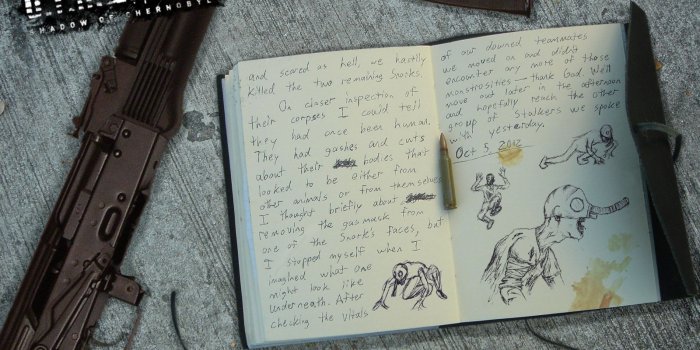 SHADOW OF CHERNOBYL
and scared as hell, we hastily
killed the two remaining Snorks.
On closer inspection of
their corpses I could tell
they had once been human.
They had gashes and cuts
about their bodies that
looked to be either from
other animals or from themselves
I thought briefly about
removing the gasmask from
one of the Snork's faces, but
I stopped myself when I
imagined what one
might look like
underneath. After
checking the vitals
of our downed teammates
we moved on and didn't
encounter any more of those
monstrosities — thank God. We'll
move out later in the afternoon
and hopefully reach the other
group of Stalkers we spoke
with yesterday.
Oct 5, 2012